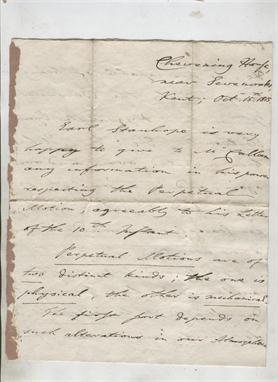 Chevening House,
near Sevenoaks,
Kent; Oct. 15th
Earl Stanhope is very
happy to give to Mr
any information in his power
respecting the Perpetual
Motion; agreeably to his Letter
of the 10th Instant.
Perpetual Motions are of
two distinct kinds; the one is
physical, the other is mechanical.
The first sort depends on
such alterations in our Atmosphere